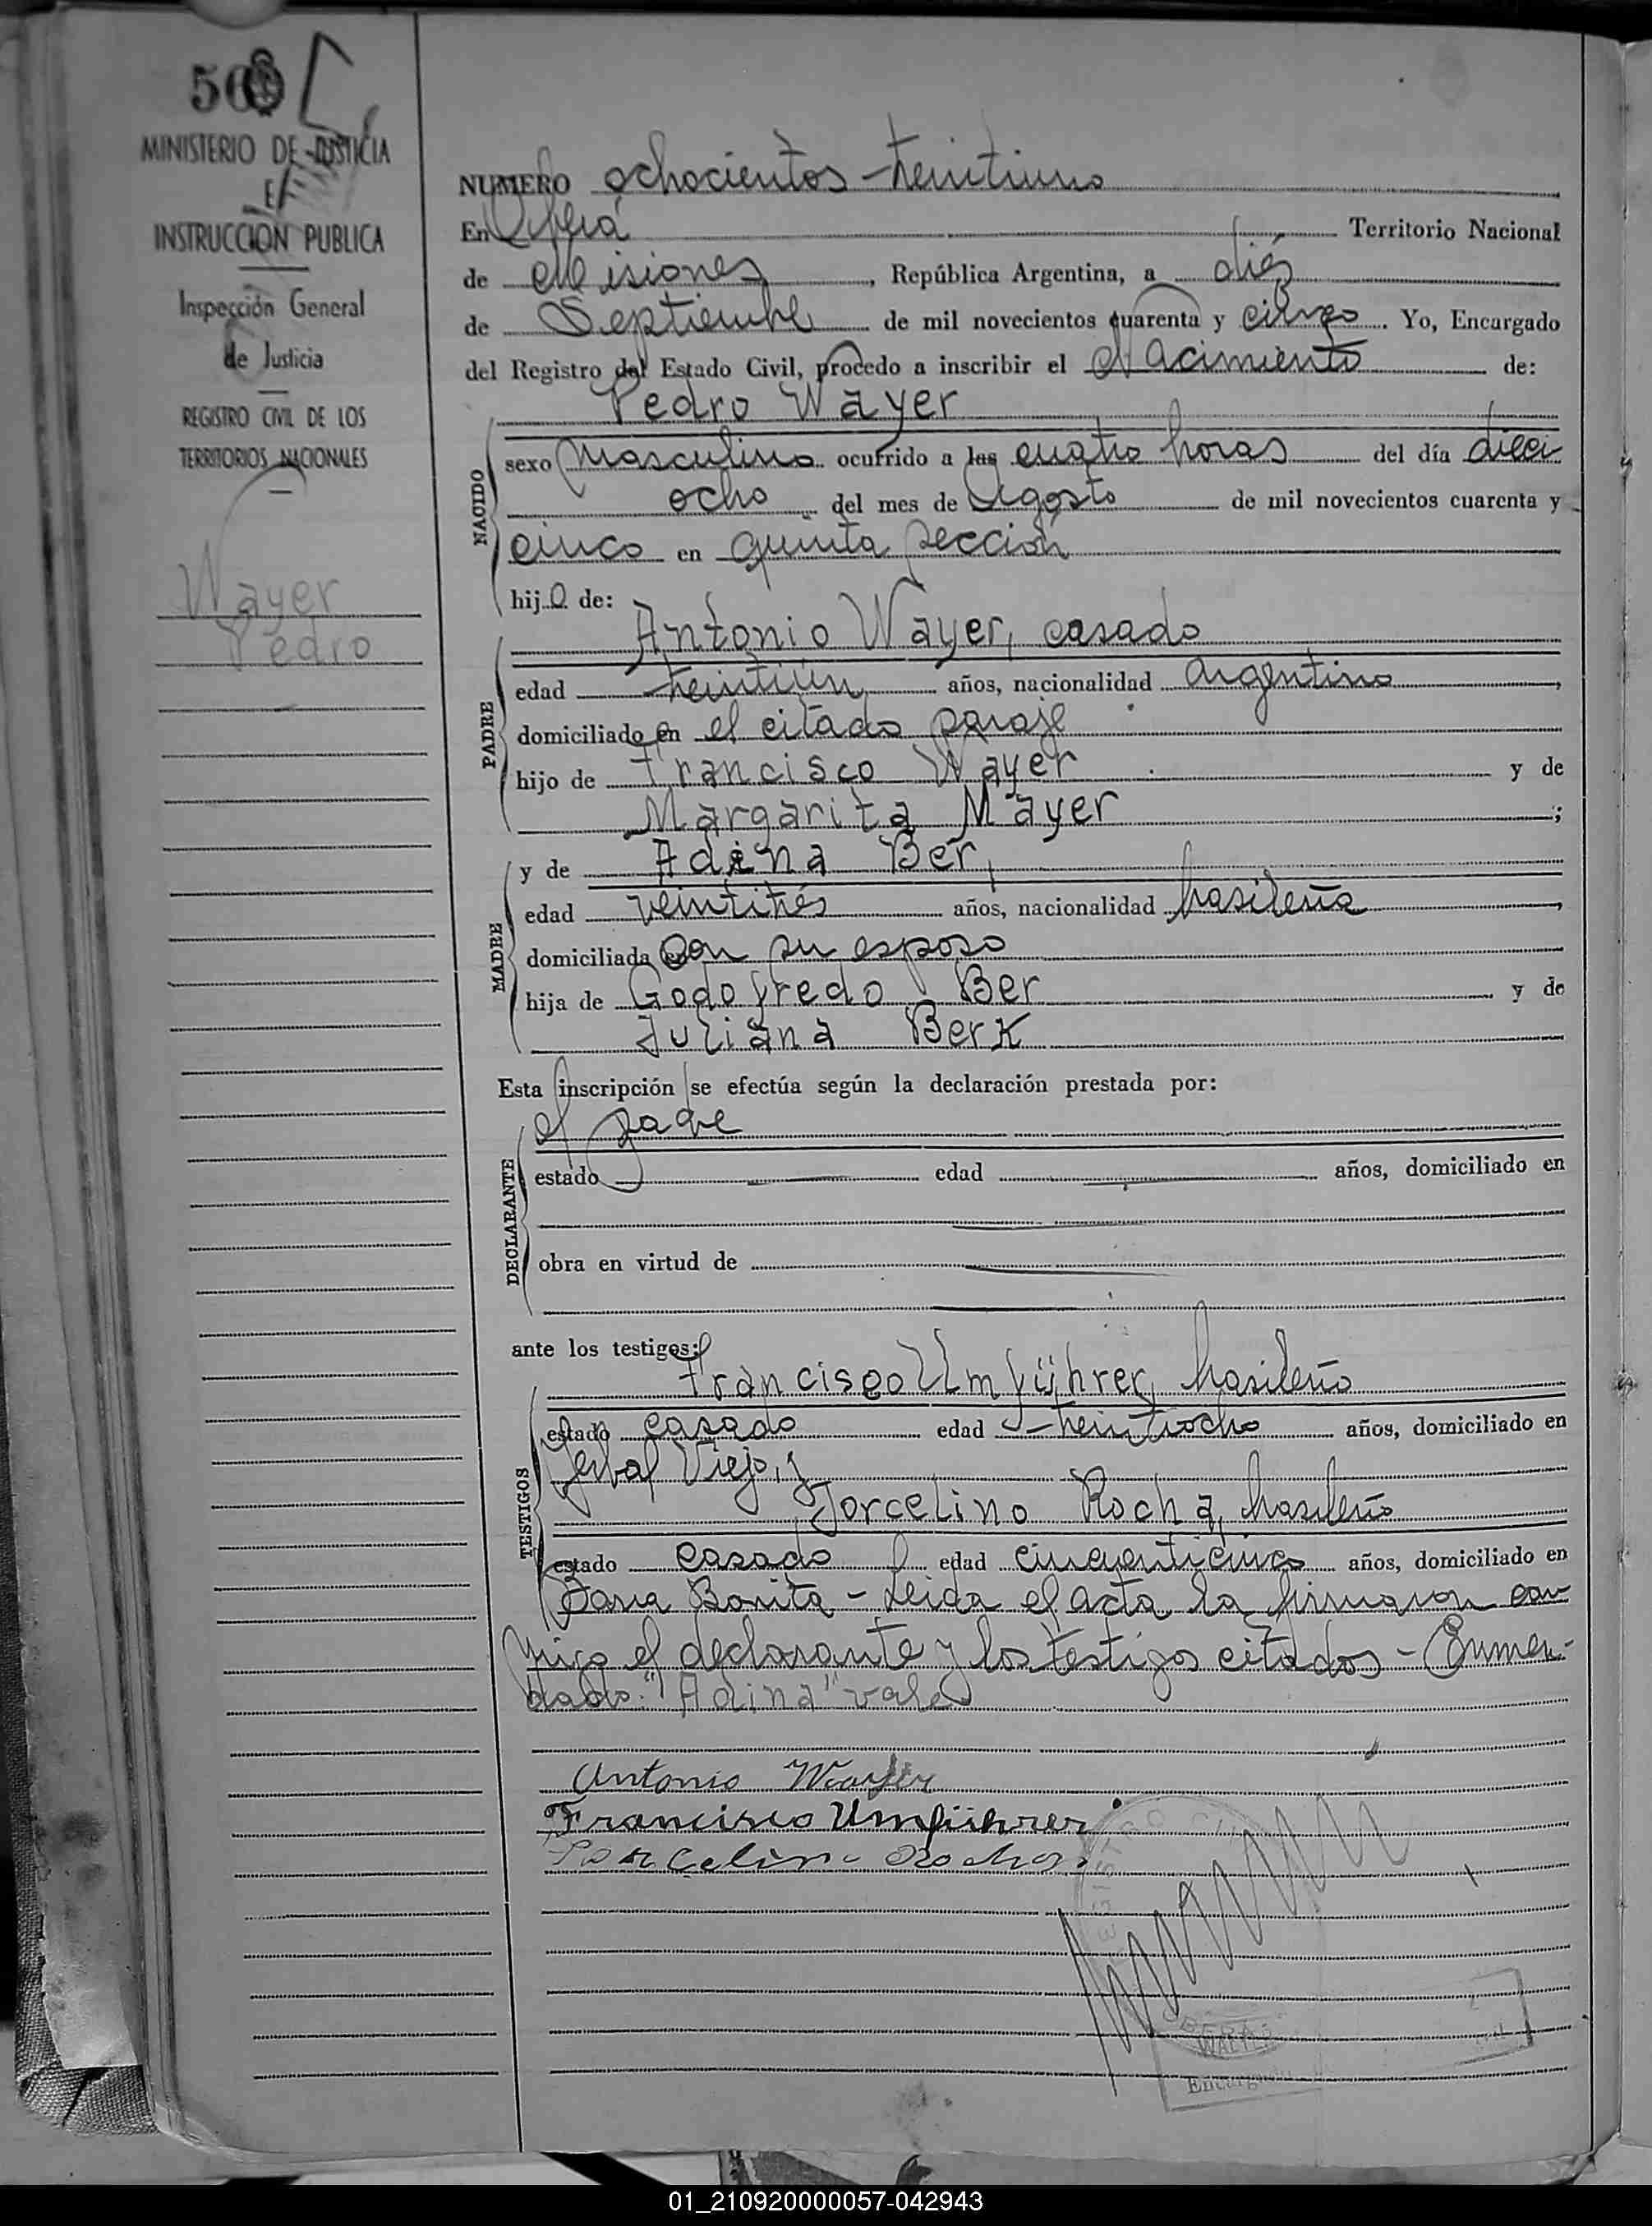 MINISTERIO DE JUSTICIA
E
INSTRUCCION PUBLICA
Inspección General
de Justicia
REGISTRO CIVIL DE LOS
TERRITORIOS NACIONALES
Wayer
Pedro
NUMERO ochocientos treintiuno
En Oberá Territorio Nacional
de Misiones, República Argentina, a diéz
de Septiembre de mil novecientos cuarenta y cinco. Yo, Encargado
del Registro del Estado Civil, procedo a inscribir el Nacimiento de:
Pedro Wayer
NACIDO
sexo masculino ocurrido a las cuatro horas del día dieci
ocho del mes de Agosto de mil novecientos cuarenta y
cinco en quinta sección
hijo de:
Antonio Wayer, casado
PADRE
edad treintiún años, nacionalidad argentino,
domiciliado en el citado paraje
hijo de Francisco Wayer y de
Margarita Mayer;
y de Adina Ber,
MADRE
edad veintitrés años, nacionalidad brasileña,
domiciliada con su esposo
hija de Godofredo Ber y de
Juliana Berk
Esta inscripción se efectúa según la declaración prestada por:
el padre
DECLARANTE
estado edad años, domiciliado en
obra en virtud de
ante los testigos:
Francisco Umführer, brasileño
TESTIGOS
estado casado edad treintiocho años, domiciliado en
Yerbal Viejo, y
Jorcelino Rocha, brasileño
estado casado edad cincuenticinco años, domiciliado en
Bonita - Leida el acta la firmaron con
migo el declarante y los testigos citados - Enmen-
dado: "Adina" vale
Antonio Wayer
Francisco Umführer
Jorcelino Rocha
OBERÁ
WALTER
Encargado
01_210920000057-042943